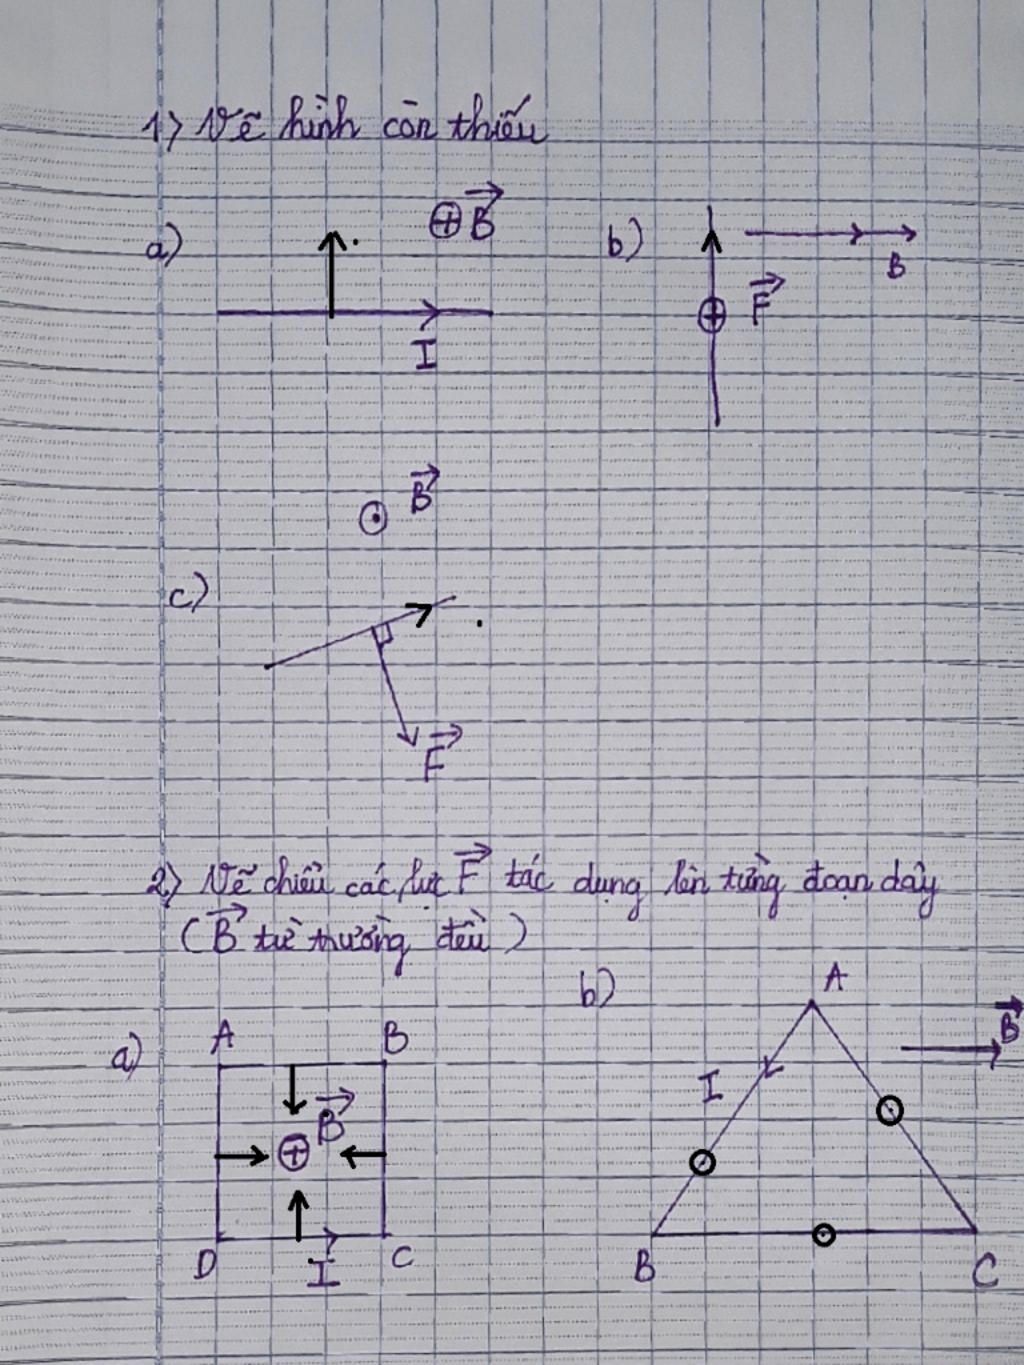 1) Vẽ hình còn thiếu
a)
B
I
b)
B
F
B
c)
F
2) Vẽ chiều các lực F tác dụng lên từng đoạn dây
(B từ trường đều)
a)
A
B
B
D
I
C
b)
A
B
I
B
C